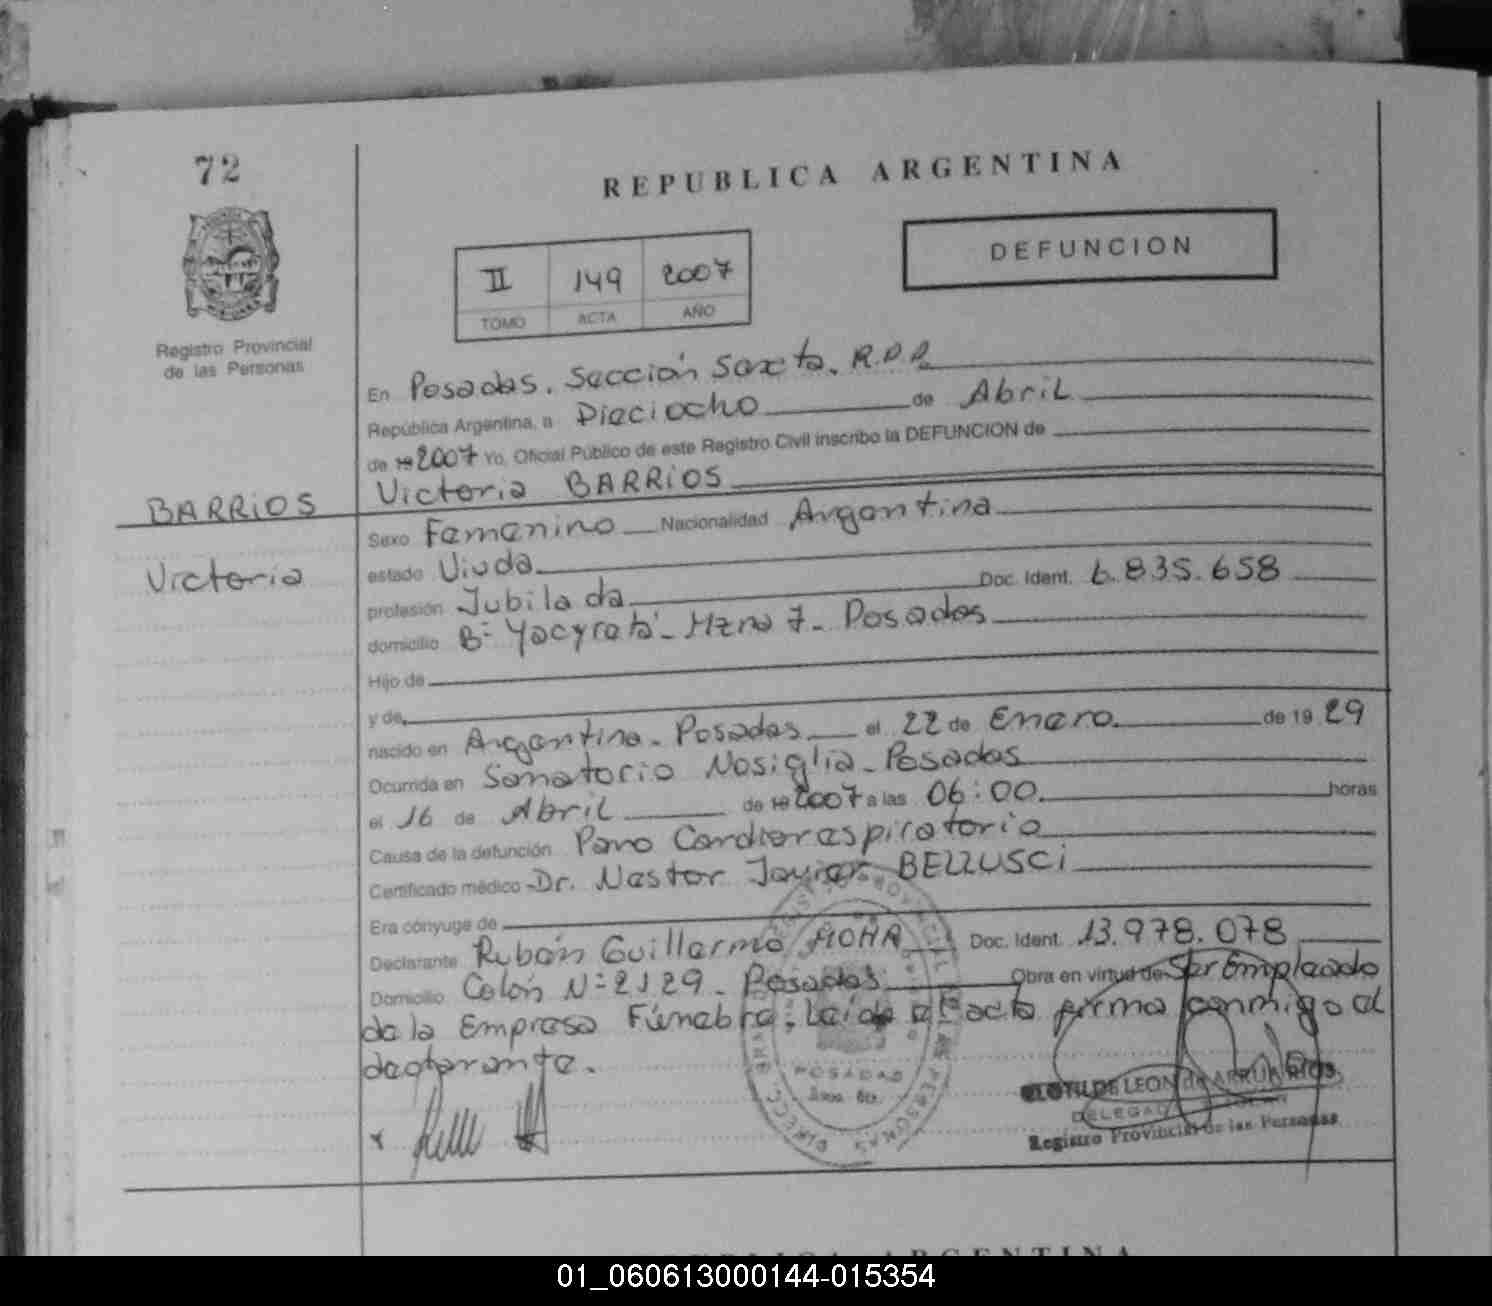 72
REPUBLICA ARGENTINA
DEFUNCION
II 149 2007
TOMO ACTA AÑO
Registro Provincial
de las Personas
En Posadas. Sección Sexta. R.P.P.
República Argentina, a Dieciocho de Abril
de 19 2007 Yo, Oficial Público de este Registro Civil inscribo la DEFUNCION de
Victoria BARRIOS
BARRIOS
Victoria
Sexo Femenino Nacionalidad Argentina
estado Viuda
profesión Jubilada Doc. Ident. 6.835.658
domicilio B= Yacyretá - Mzna 7 - Posadas
Hijo de
y de
nacido en Argentina - Posadas el 22 de Enero de 19 29
Ocurrida en Sanatorio Nosiglia - Posadas
el 16 de Abril de 19 2007 a las 06:00 horas
Causa de la defunción Paro Cardiorespiratorio
Certificado médico Dr. Nestor Javier BELLUSCI
Era cónyuge de
Declarante Rubén Guillermo MOHR Doc. Ident. 13.978.078
Domicilio Colón N= 2129 - Posadas Obra en virtud de Ser Empleado
de la Empresa Fúnebre, Leída el acta firma conmigo el
declarante.
POSADAS
CLOTILDE LEON de
Registro Provincial de las Personas
REPUBLICA ARGENTINA
01_060613000144-015354